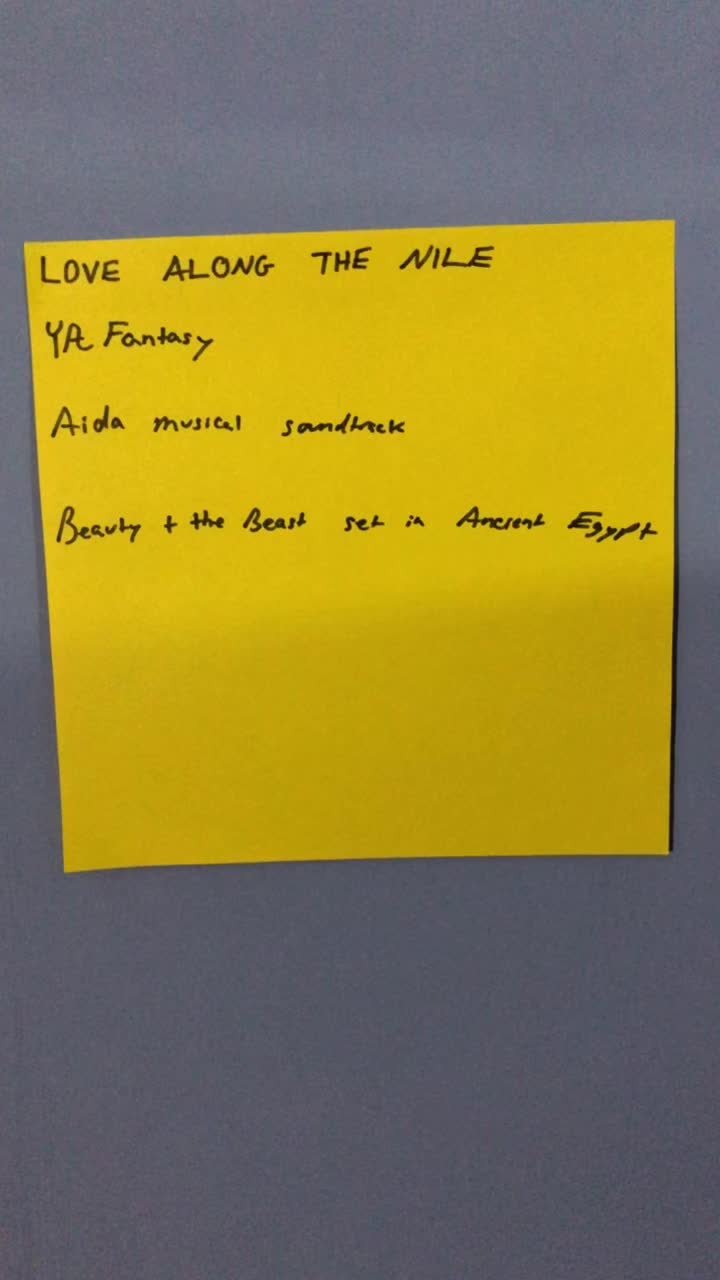 LOVE ALONG THE NILE
YA Fantasy
Aida musical soundtrack
Beauty + the Beast set in Ancient Egypt